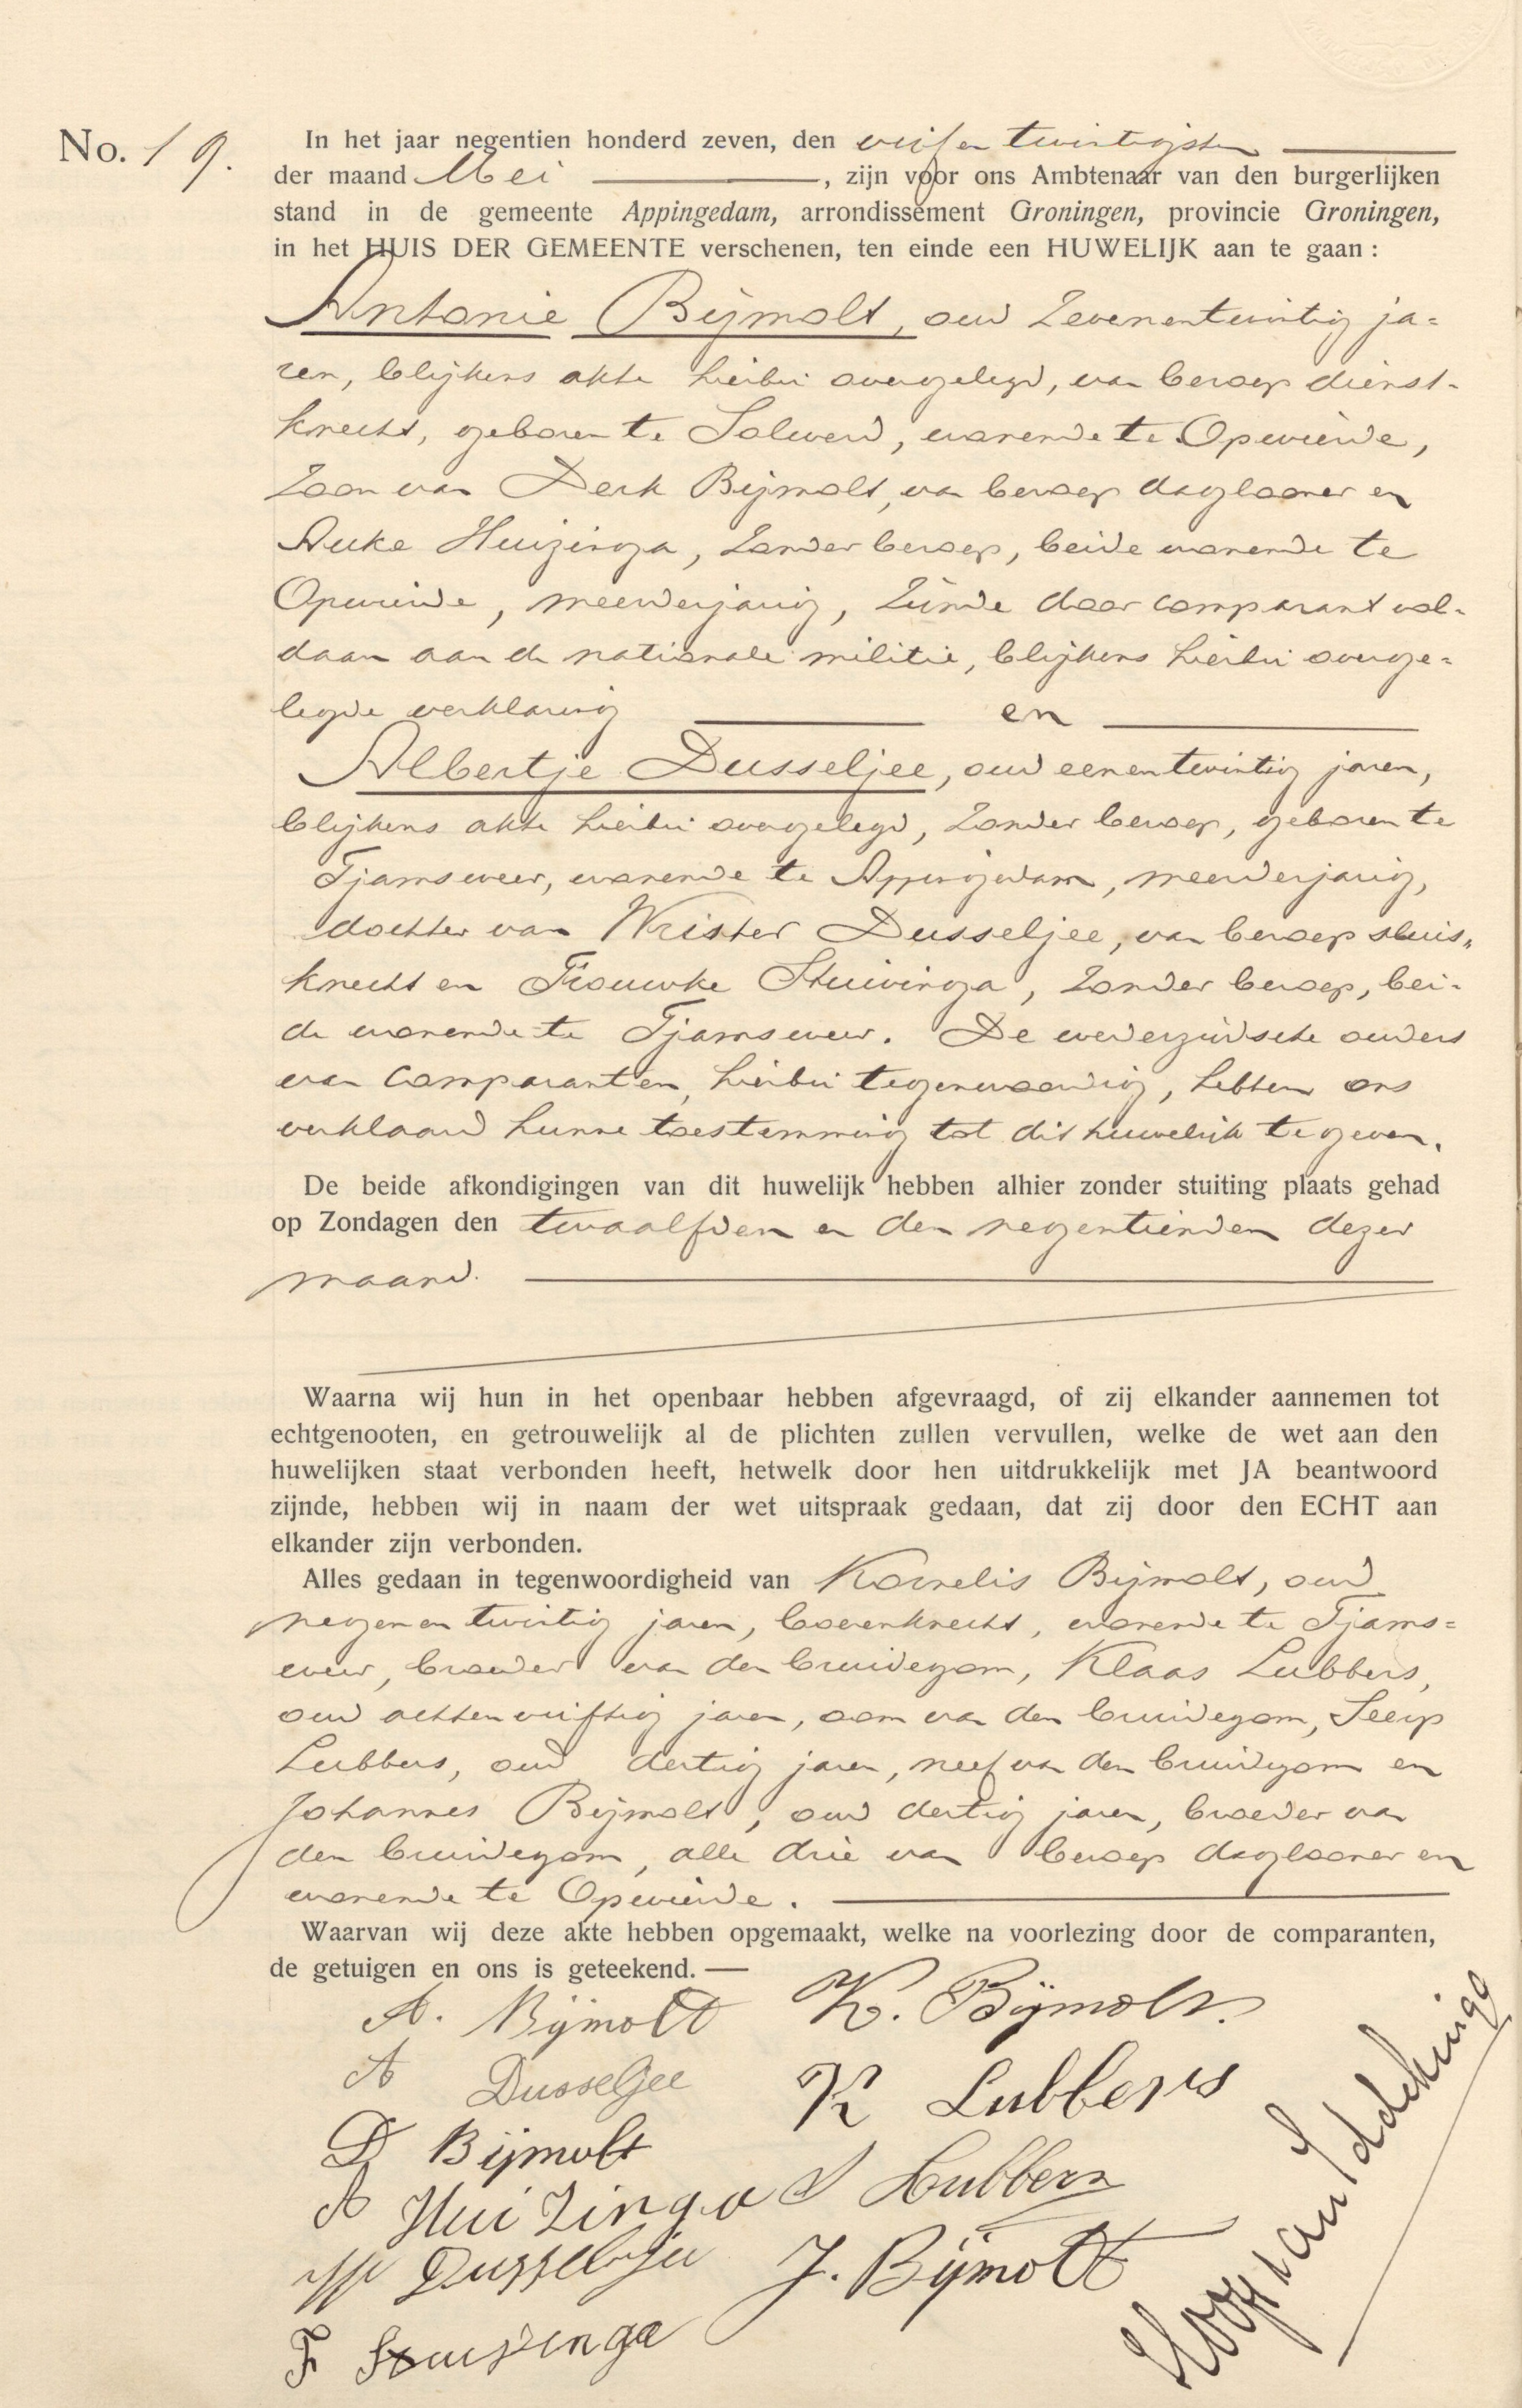 No. 19.
In het jaar negentien honderd zeven, den vijfen twintigsten
der maand Mei, zijn voor ons Ambtenaar van den burgerlijken
stand in de gemeente Appingedam, arrondissement Groningen, provincie Groningen,
in het HUIS DER GEMEENTE verschenen, ten einde een HUWELIJK aan te gaan:
Antonie Bijmolt, oud zevenentwintig ja=
ren, blijkens akte hierbij overgelegd, van beroep dienst-
knecht, geboren te Solwerd, wonende te Opwierde,
zoon van Derk Bijmolt, van beroep daglooner en
Auke Huizinga, zonder beroep, beide wonende te
Opwierde, meerderjarig, zijnde door comparant vol-
daan aan de nationale militie, blijkens hierbij overge=
legde verklaring en
Albertje Dusseljee, oud eenentwintig jaren,
blijkens akte hierbij overgelegd, zonder beroep, geboren te
Tjamsweer, wonende te Appingedam, meerderjarig,
dochter van Wrister Dusseljee, van beroep sluis„
knecht en Frouwke Stuivinga, zonder beroep, bei-
de wonende te Tjamsweer. De wederzijdsche ouders
van comparanten, hierbij tegenwoordig, hebben ons
verklaard hunne toestemming tot dit huwelijk te geven.
De beide afkondigingen van dit huwelijk hebben alhier zonder stuiting plaats gehad
op Zondagen den twaalfden en den negentienden dezer
maand.
Waarna wij hun in het openbaar hebben afgevraagd, of zij elkander aannemen tot
echtgenooten, en getrouwelijk al de plichten zullen vervullen, welke de wet aan den
huwelijken staat verbonden heeft, hetwelk door hen uitdrukkelijk met JA beantwoord
zijnde, hebben wij in naam der wet uitspraak gedaan, dat zij door den ECHT aan
elkander zijn verbonden.
Alles gedaan in tegenwoordigheid van Kornelis Bijmolt, oud
negenen twintig jaren, boerenknecht, wonende te Tjams=
weer, broeder van den bruidegom, Klaas Lubbers,
oud achtenvijftig jaren, oom van den bruidegom, Seerp
Lubbers, oud dertig jaren, neef van den bruidegom en
Johannes Bijmolt, oud dertig jaren, broeder van
den bruidegom, alle drie van beroep daglooner en
wonende te Opwierde.
Waarvan wij deze akte hebben opgemaakt, welke na voorlezing door de comparanten,
de getuigen en ons is geteekend.
A. Bijmolt K. Bijmolt.
A Dusseljee K Lubbers
D Bijmolt
A Huizinga S Lubbers
W Dusseljee J. Bijmolt
F Stuivinga